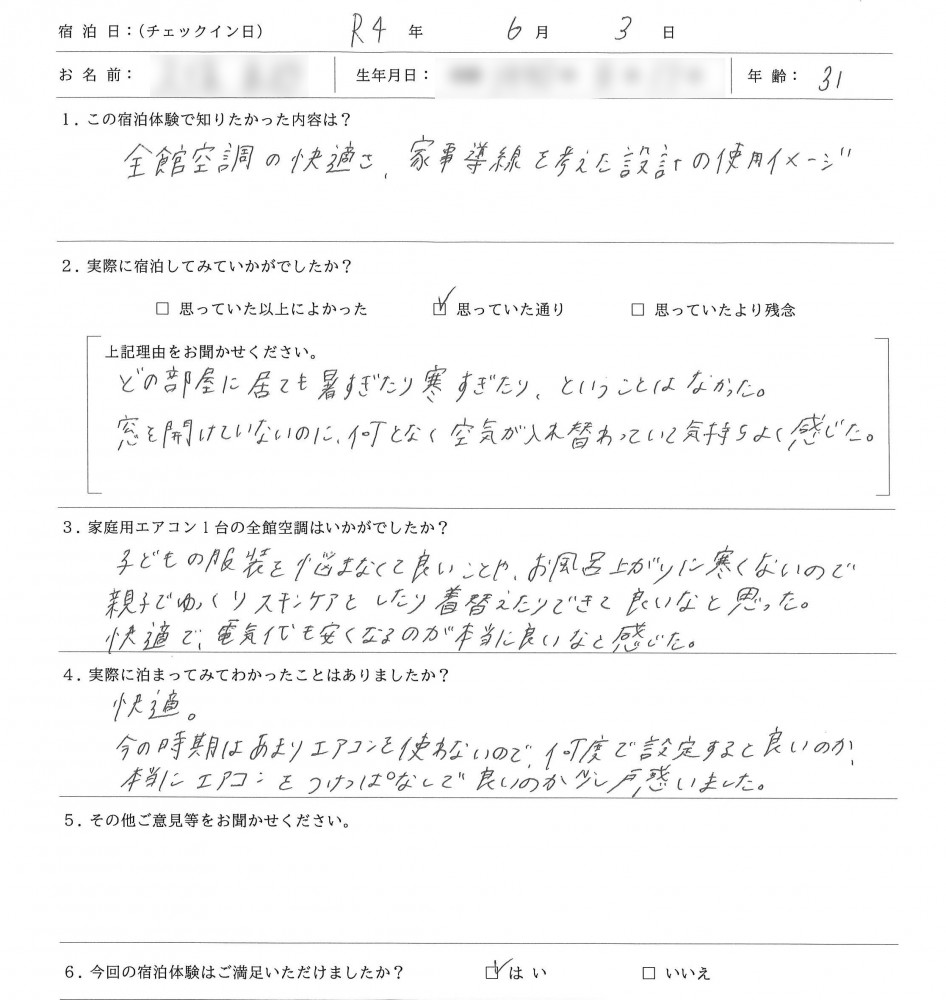 宿泊日：（チェックイン日） R4 年 6 月 3 日
お名前： 生年月日： 年齢： 31
1．この宿泊体験で知りたかった内容は？
全館空調の快適さ、家事導線を考えた設計の使用イメージ
2．実際に宿泊してみていかがでしたか？
□ 思っていた以上によかった ☑ 思っていた通り □ 思っていたより残念
上記理由をお聞かせください。
どの部屋に居ても暑すぎたり寒すぎたり、ということはなかった。
窓を開けていないのに、何となく空気が入れ替わっていて気持ちよく感じた。
3．家庭用エアコン1台の全館空調はいかがでしたか？
子どもの服装を悩まなくて良いことや、お風呂上がりに寒くないので
親子でゆっくりスキンケアとしたり着替えたりできて良いなと思った。
快適で、電気代も安くなるのが本当に良いなと感じた。
4．実際に泊まってみてわかったことはありましたか？
快適。
今の時期はあまりエアコンを使わないので、何度で設定すると良いのか、
本当にエアコンをつけっぱなしで良いのか少し戸惑いました。
5．その他ご意見等をお聞かせください。
6．今回の宿泊体験はご満足いただけましたか？ ☑ はい □ いいえ